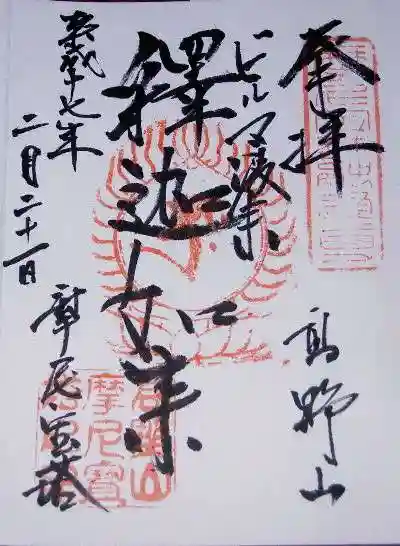 奉拝
高野山
ビルマ渡来
釋迦如来
摩尼宝塔
平成十七年
二月二十一日